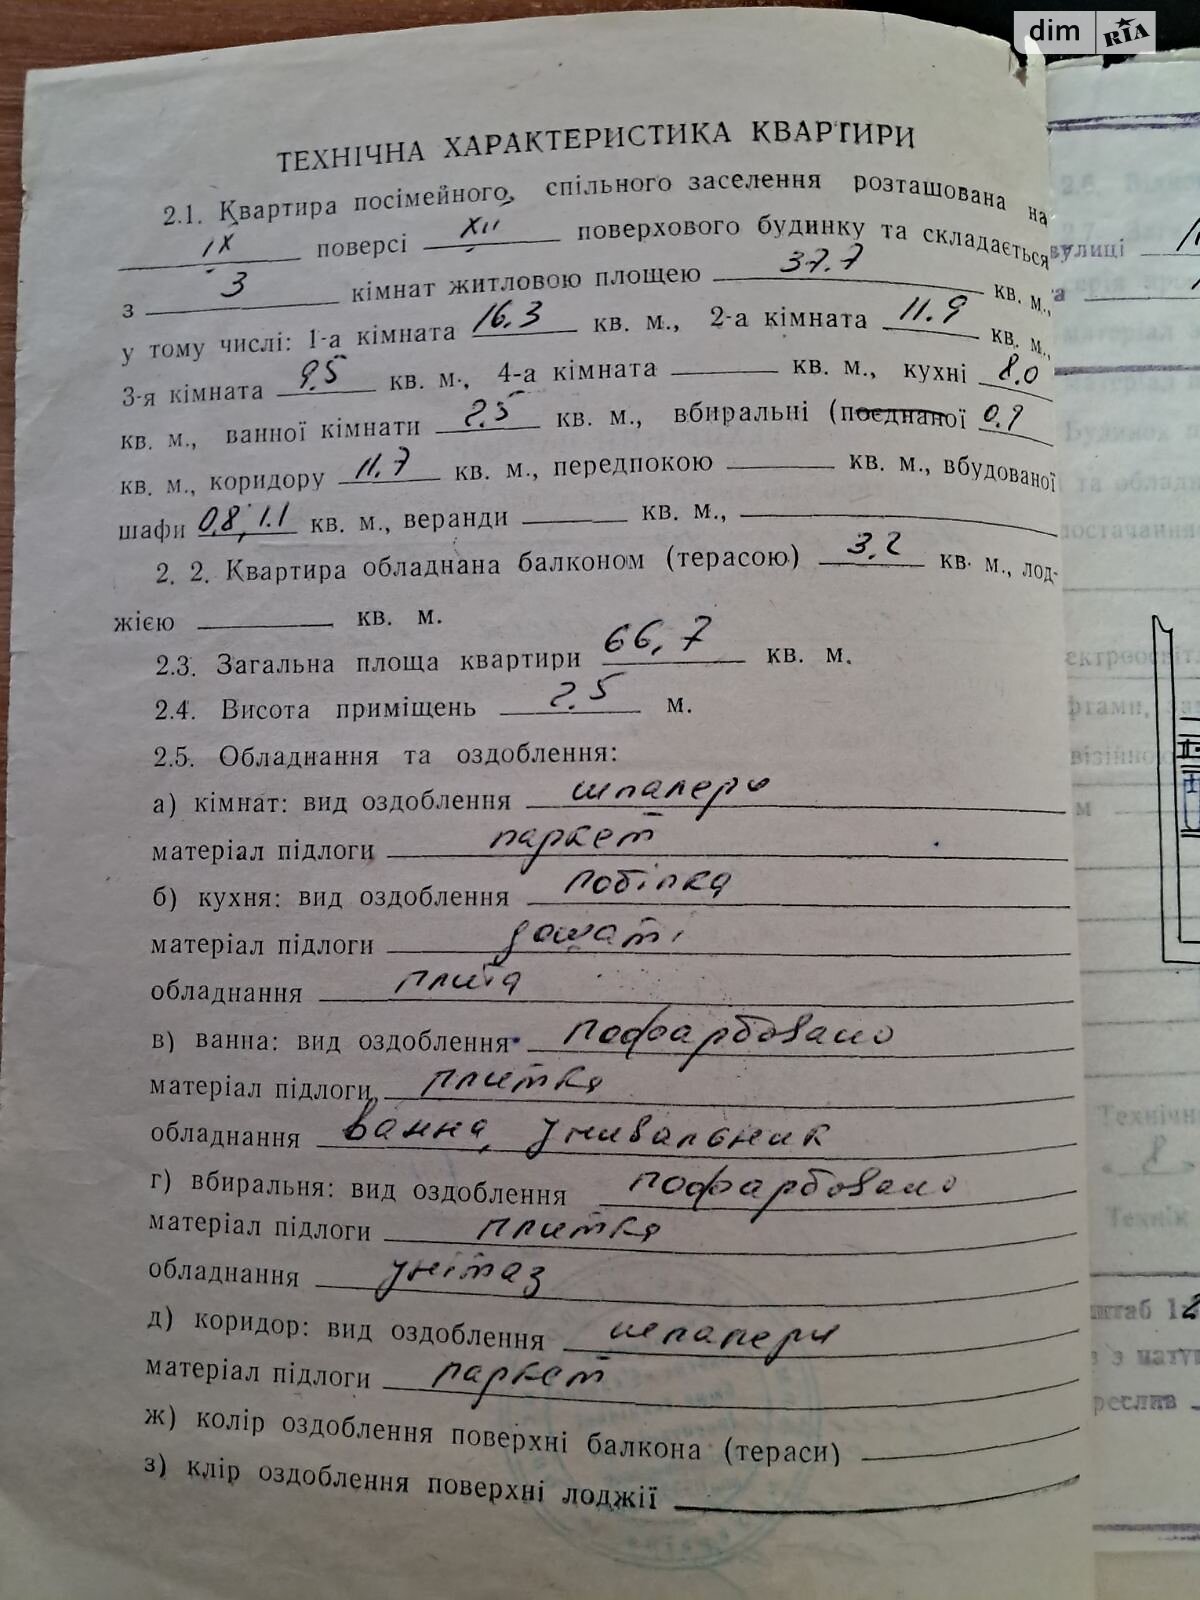 dim RIA
ТЕХНІЧНА ХАРАКТЕРИСТИКА КВАРТИРИ
2.1. Квартира посімейного, спільного заселення розташована на
IX поверсі XII поверхового будинку та складається
з 3 кімнат житловою площею 37.7 кв. м.,
у тому числі: 1-а кімната 16.3 кв. м., 2-а кімната 11.9 кв. м.,
3-я кімната 9.5 кв. м., 4-а кімната кв. м., кухні 8.0
кв. м., ванної кімнати 2.5 кв. м., вбиральні (поєднаної 0.9
кв. м., коридору 11.7 кв. м., передпокою кв. м., вбудованої
шафи 0.8, 1.1 кв. м., веранди кв. м.,
2. 2. Квартира обладнана балконом (терасою) 3.2 кв. м., лод-
жією кв. м.
2.3. Загальна площа квартири 66,7 кв. м.
2.4. Висота приміщень 2.5 м.
2.5. Обладнання та оздоблення:
а) кімнат: вид оздоблення шпалери
матеріал підлоги паркет
б) кухня: вид оздоблення побілка
матеріал підлоги дощаті
обладнання плита
в) ванна: вид оздоблення пофарбовано
матеріал підлоги плитка
обладнання ванна, умивальник
г) вбиральня: вид оздоблення пофарбовано
матеріал підлоги плитка
обладнання унітаз
д) коридор: вид оздоблення шпалери
матеріал підлоги паркет
ж) колір оздоблення поверхні балкона (тераси)
з) клір оздоблення поверхні лоджії
вулиці
Технік